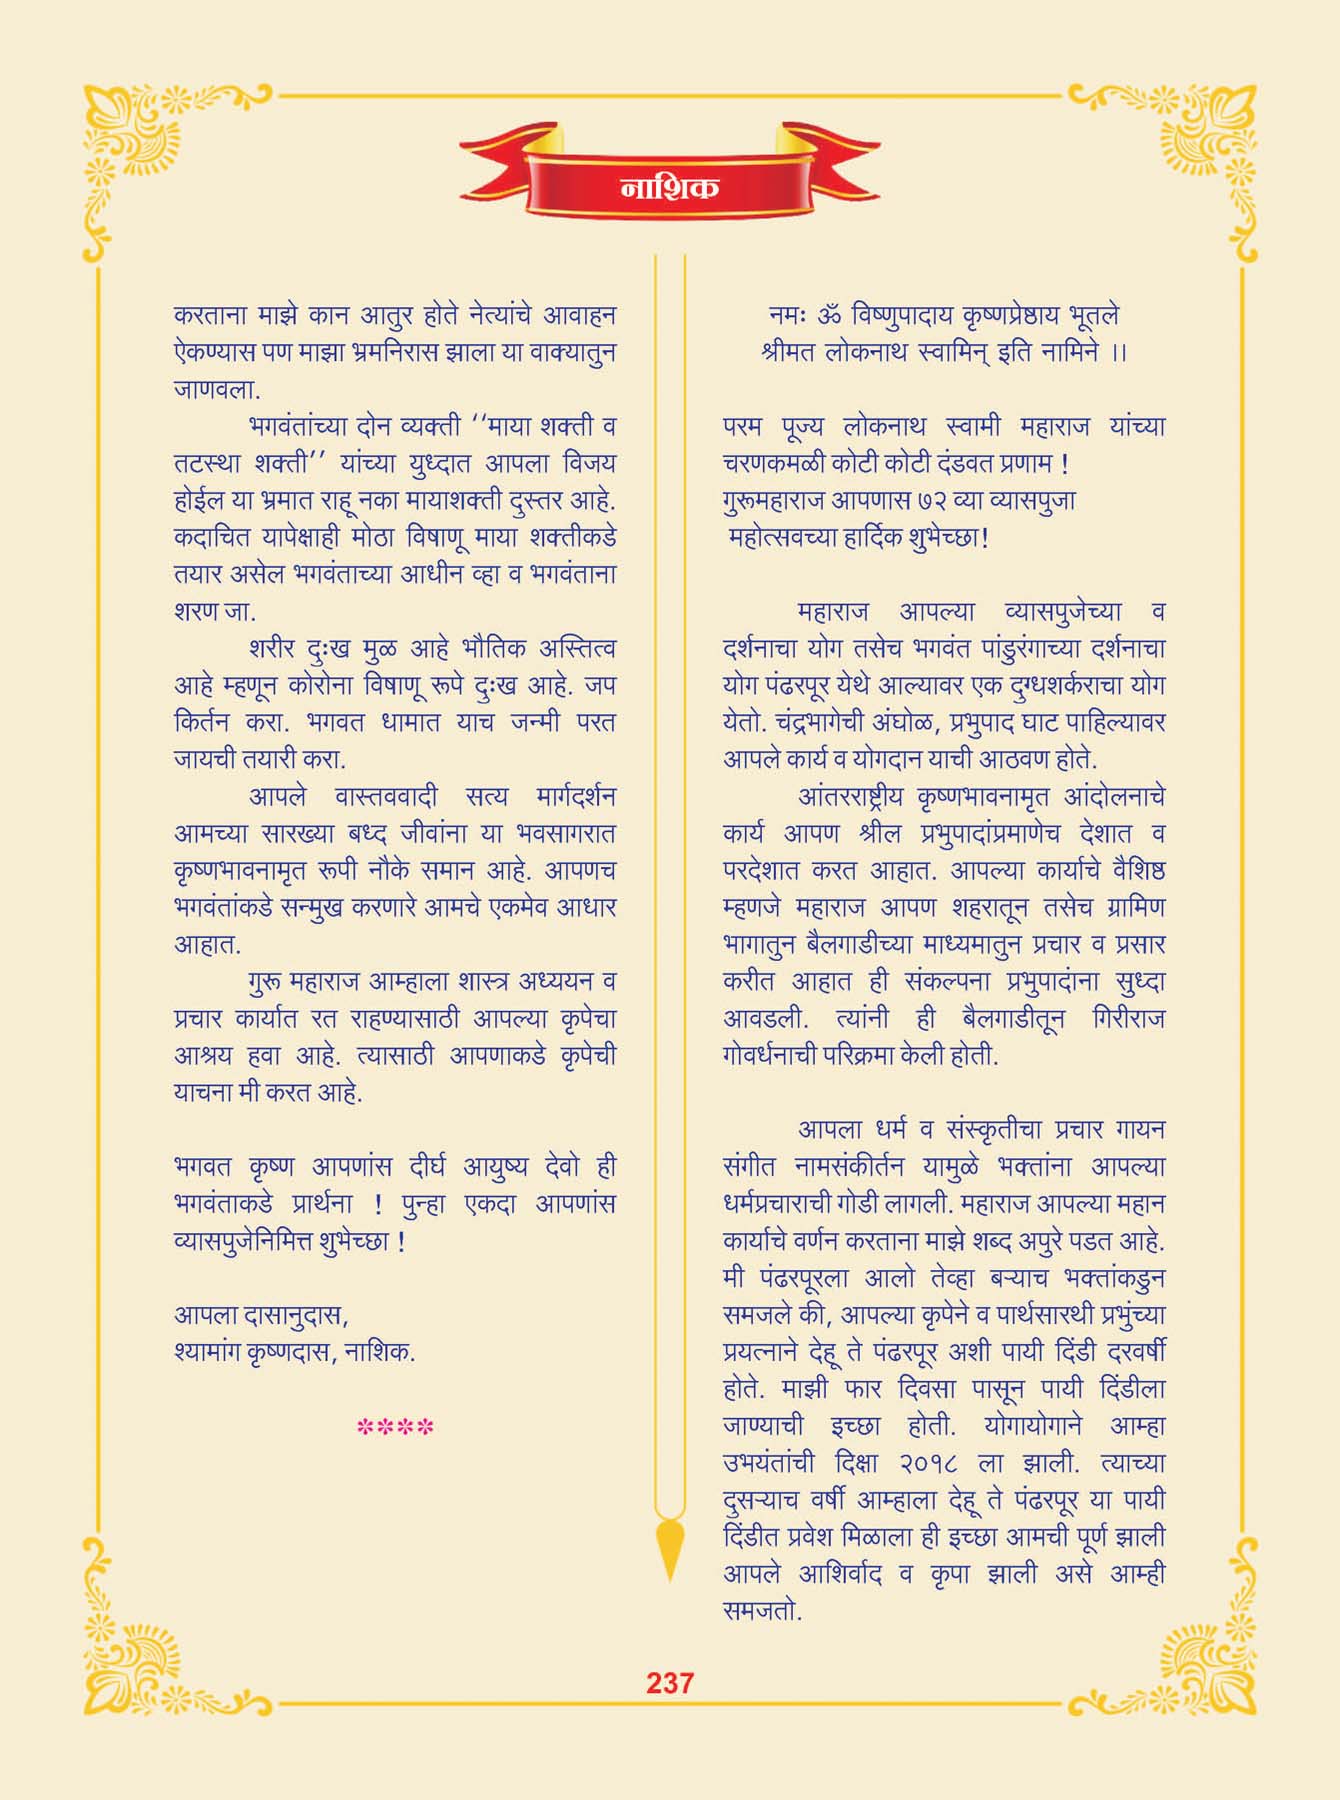 नाशिक
करताना माझे कान आतुर होते नेत्यांचे आवाहन
ऐकण्यास पण माझा भ्रमनिरास झाला या वाक्यातुन
जाणवला.
भगवंतांच्या दोन व्यक्ती ‘‘माया शक्ती व
तटस्था शक्ती’’ यांच्या युध्दात आपला विजय
होईल या भ्रमात राहू नका मायाशक्ती दुस्तर आहे.
कदाचित यापेक्षाही मोठा विषाणू माया शक्तीकडे
तयार असेल भगवंताच्या आधीन व्हा व भगवंताना
शरण जा.
शरीर दुःख मुळ आहे भौतिक अस्तित्व
आहे म्हणून कोरोना विषाणू रूपे दुःख आहे. जप
किर्तन करा. भगवत धामात याच जन्मी परत
जायची तयारी करा.
आपले वास्तववादी सत्य मार्गदर्शन
आमच्या सारख्या बध्द जीवांना या भवसागरात
कृष्णभावनामृत रूपी नौके समान आहे. आपणच
भगवंतांकडे सन्मुख करणारे आमचे एकमेव आधार
आहात.
गुरू महाराज आम्हाला शास्त्र अध्ययन व
प्रचार कार्यात रत राहण्यासाठी आपल्या कृपेचा
आश्रय हवा आहे. त्यासाठी आपणाकडे कृपेची
याचना मी करत आहे.
भगवत कृष्ण आपणांस दीर्घ आयुष्य देवो ही
भगवंताकडे प्रार्थना ! पुन्हा एकदा आपणांस
व्यासपुजेनिमित्त शुभेच्छा !
आपला दासानुदास,
श्यामांग कृष्णदास, नाशिक.
****
नमः ॐ विष्णुपादाय कृष्णप्रेष्ठाय भूतले
श्रीमत लोकनाथ स्वामिन् इति नामिने ।।
परम पूज्य लोकनाथ स्वामी महाराज यांच्या
चरणकमळी कोटी कोटी दंडवत प्रणाम !
गुरूमहाराज आपणास ७२ व्या व्यासपुजा
महोत्सवच्या हार्दिक शुभेच्छा!
महाराज आपल्या व्यासपुजेच्या व
दर्शनाचा योग तसेच भगवंत पांडुरंगाच्या दर्शनाचा
योग पंढरपूर येथे आल्यावर एक दुग्धशर्कराचा योग
येतो. चंद्रभागेची अंघोळ, प्रभुपाद घाट पाहिल्यावर
आपले कार्य व योगदान याची आठवण होते.
आंतरराष्ट्रीय कृष्णभावनामृत आंदोलनाचे
कार्य आपण श्रील प्रभुपादांप्रमाणेच देशात व
परदेशात करत आहात. आपल्या कार्याचे वैशिष्ठ
म्हणजे महाराज आपण शहरातून तसेच ग्रामिण
भागातुन बैलगाडीच्या माध्यमातुन प्रचार व प्रसार
करीत आहात ही संकल्पना प्रभुपादांना सुध्दा
आवडली. त्यांनी ही बैलगाडीतून गिरीराज
गोवर्धनाची परिक्रमा केली होती.
आपला धर्म व संस्कृतीचा प्रचार गायन
संगीत नामसंकीर्तन यामुळे भक्तांना आपल्या
धर्मप्रचाराची गोडी लागली. महाराज आपल्या महान
कार्याचे वर्णन करताना माझे शब्द अपुरे पडत आहे.
मी पंढरपूरला आलो तेव्हा बऱ्याच भक्तांकडुन
समजले की, आपल्या कृपेने व पार्थसारथी प्रभुंच्या
प्रयत्नाने देहू ते पंढरपूर अशी पायी दिंडी दरवर्षी
होते. माझी फार दिवसा पासून पायी दिंडीला
जाण्याची इच्छा होती. योगायोगाने आम्हा
उभयंतांची दिक्षा २०१८ ला झाली. त्याच्या
दुसऱ्याच वर्षी आम्हाला देहू ते पंढरपूर या पायी
दिंडीत प्रवेश मिळाला ही इच्छा आमची पूर्ण झाली
आपले आशिर्वाद व कृपा झाली असे आम्ही
समजतो.
237